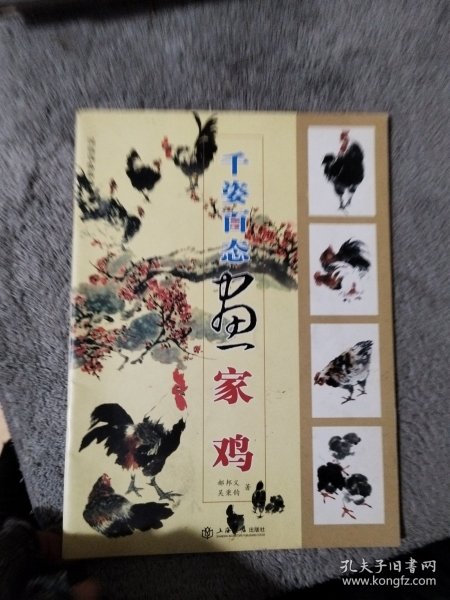 千姿百态画家鸡
郝邦义
吴秉钧
著
出版社
孔夫子旧书网
www.kongfz.com